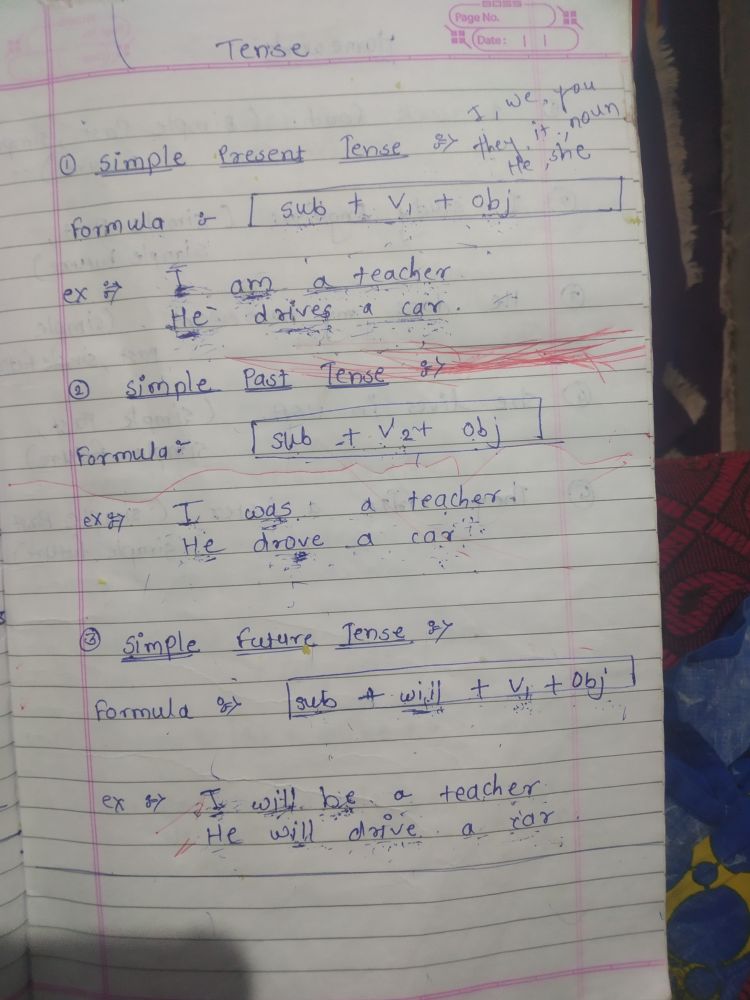 BOSS
Page No.
Date: | |
Tense
I, we, you
① Simple Present Tense :-> they, it, noun
He, she
Formula :- sub + V1 + Obj
ex :-> I am a teacher
He drives a car.
② Simple Past Tense :->
Formula :- sub + V2 + Obj
ex :-> I was a teacher
He drove a car.
③ Simple Future Tense :->
Formula :-> sub + will + V1 + Obj
ex :-> I will be a teacher
He will drive a car.